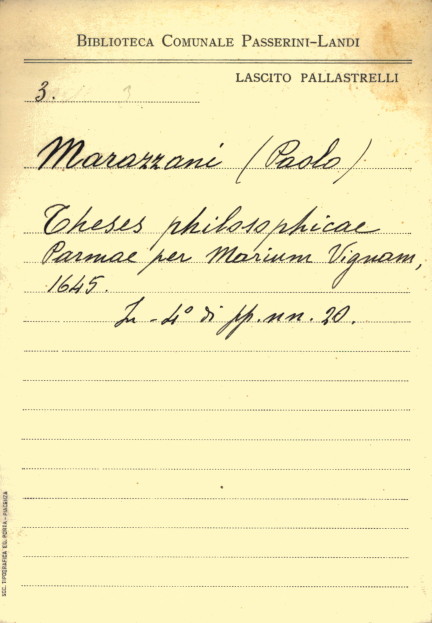 BIBLIOTECA COMUNALE PASSERINI-LANDI
LASCITO PALLASTRELLI
3.
Marazzani (Paolo)
Theses philosophicae
Parmae per Marium Vignam,
1645.
In-4° di pp. nn. 20.
SOC. TIPOGRAFICA ED. PORTA - PIACENZA